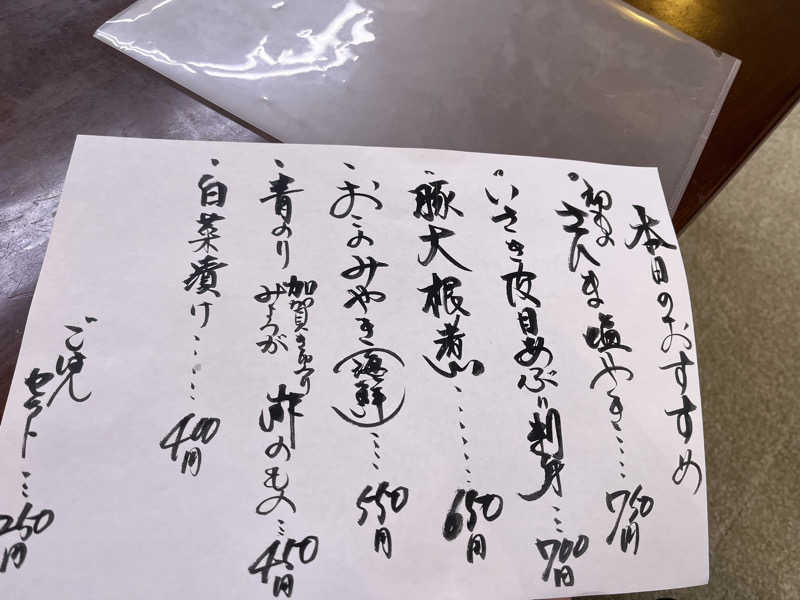 本日のおすすめ
初もの
さんま塩やき.... 750円
いさき皮目あぶり刺身... 700円
豚大根煮....... 650円
おこのみやき(海鮮).... 550円
青のり 加賀きゅうり
みょうが 酢のもの... 450円
白菜漬け..... 400円
ごはん
セット... 250円